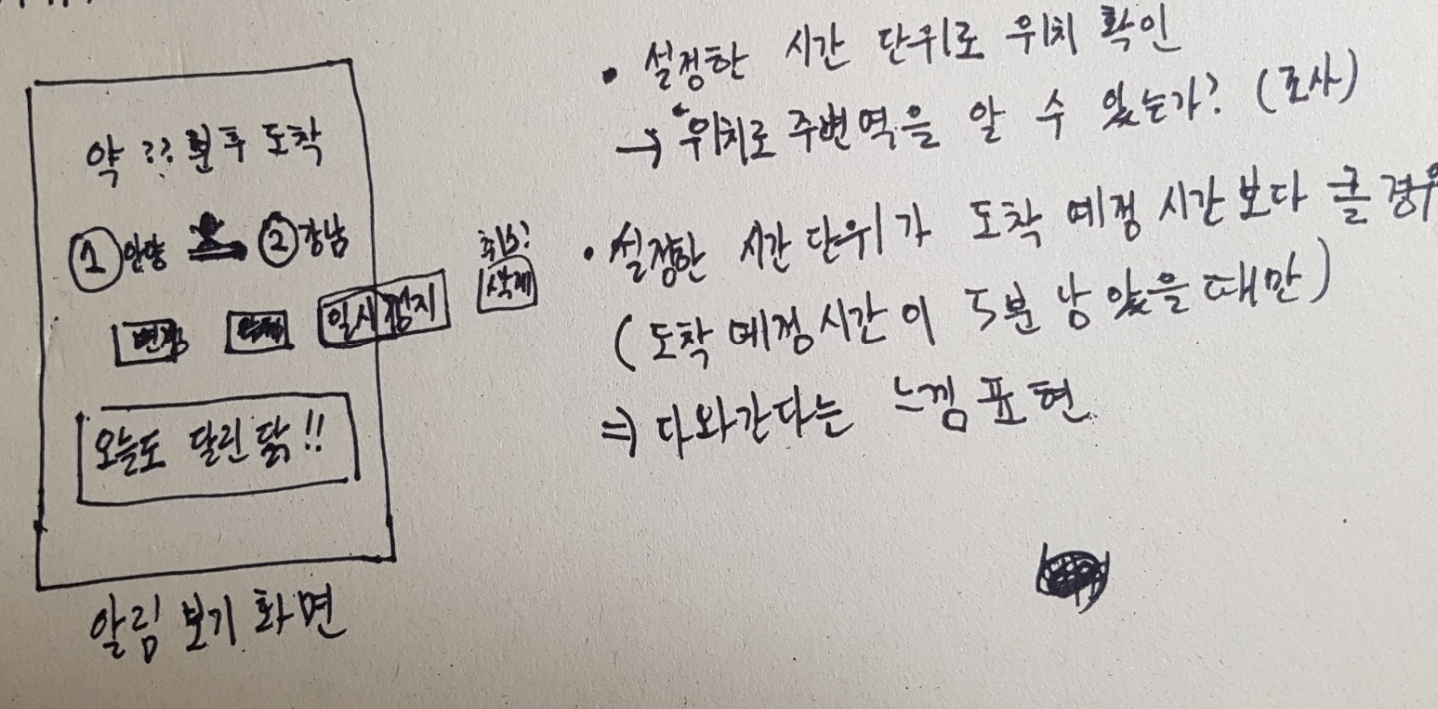 약 ?? 분 후 도착
① 안양 → ② 강남
일시정지
취소?
삭제
오늘도 달린닭!!
알림 보기 화면
• 설정한 시간 단위로 위치 확인
→ 위치로 주변역을 알 수 있는가? (조사)
• 설정한 시간 단위가 도착 예정 시간보다 클 경우
(도착 예정 시간이 5분 남았을 때만)
⇒ 다와간다는 느낌 표현